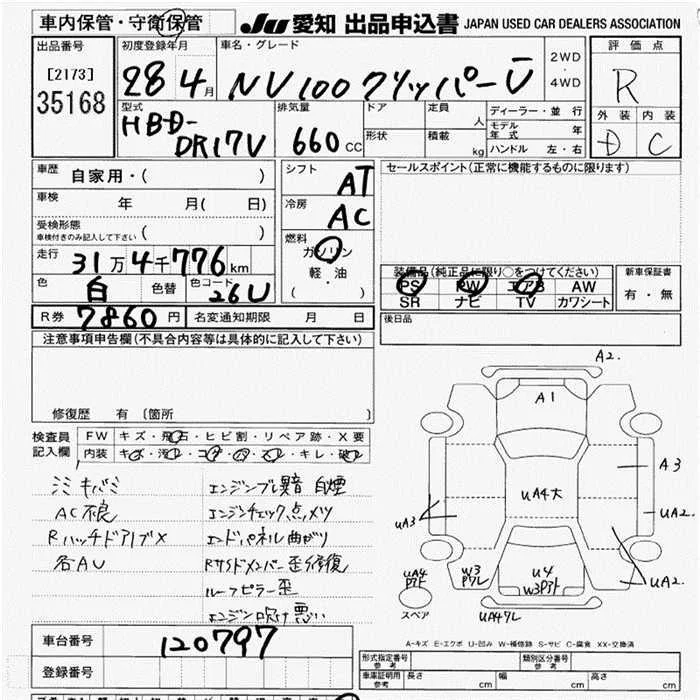 車内保管・守衛保管
JU 愛知 出品申込書 JAPAN USED CAR DEALERS ASSOCIATION
出品番号
[2173]
35168
初度登録年月
28 4月
車名・グレード
NV100クリッパーU
2WD
・
4WD
評価点
R
外装 内装
D C
型式
HBD-
DR17V
排気量
660 CC
ドア
定員
人
形状
積載
kg
ディーラー・並行
モデル年式 年
ハンドル 左・右
車歴
自家用・( )
車検
年 月( 日)
受検形態
車検付きのみ記入して下さい ( )
走行
31万4千776km
色
白
色替
色コード
26U
シフト
AT
冷房
AC
燃料
ガソリン
軽・油
( )
セールスポイント(正常に機能するものに限ります)
装備品(純正品に限り○をつけてください)
PS PW エアB AW
SR ナビ TV カワシート
新車保証書
有・無
R券 7860円
名変通知期限 月 日
後日品
注意事項申告欄(不具合内容等は具体的に記入して下さい)
修復歴 有〔箇所 〕
検査員
記入欄
FW キズ・飛石・ヒビ割・リペア跡・X要
内装
ミミキバミ
AC不良
RハッチドアIブX
各AU
エンジンブレ異音 白煙
エンジンチェック点メツ
エンドパネル曲がり
Rサイドメンバー歪修復
ルーフピラー歪
エンジン吹け悪い
A2.
A1
A3
UA4大
UA2.
UA3
UA2.
UA4
W3
U4
スペア
UA4
A-キズ E-エクボ U-凹み W-補修跡 S-サビ C-腐食 XX-交換済
車台番号 120797
登録番号
形式指定番号
参考
類別区分番号
参考
車庫証明用
参考
長さ cm
幅 cm
高さ cm